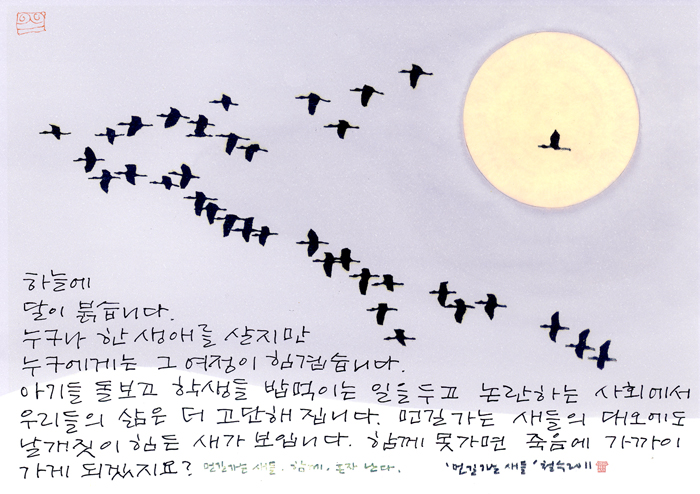 하늘에
달이 붉습니다.
누구나 한 생애를 살지만
누구에게는 그 여정이 힘겹습니다.
아기들 돌보고 학생들 밥먹이는 일을두고 논란하는 사회에서
우리들의 삶은 더 고단해 집니다. 먼길가는 새들의 대오에도
날개짓이 힘든 새가 보입니다. 함께 못가면 죽음에 가까이
가게 되겠지요? 먼길가는 새들. 함께, 혼자 난다.
'먼길가는 새들' 철수 2011